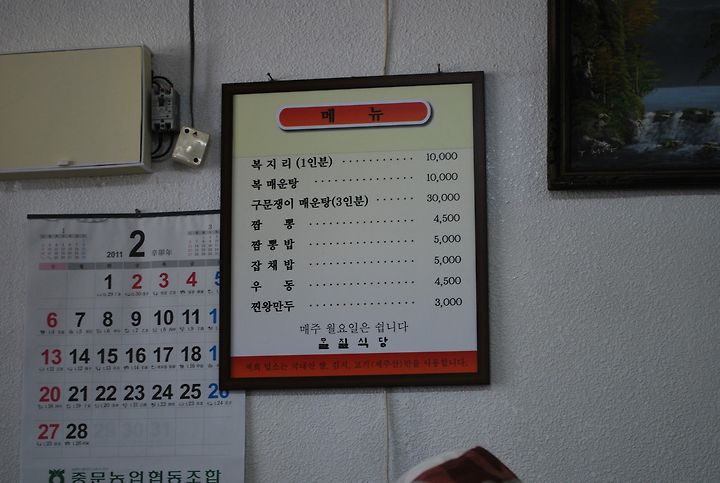 메 뉴
복 지 리 (1인분) ············ 10,000
복 매운탕 ················· 10,000
구문쟁이 매운탕(3인분) ········ 30,000
짬 뽕 ················· 4,500
짬 뽕 밥 ················· 5,000
잡 채 밥 ················· 5,000
우 동 ················· 4,500
찐왕만두 ················· 3,000
매주 월요일은 쉽니다
식 당
2011 2 辛卯年
1 2 3 4 5
6 7 8 9 10 11
13 14 15 16 17 18
20 21 22 23 24 25 26
27 28
중문농업협동조합